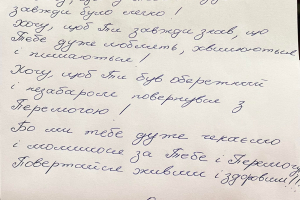 завжди було легко!
Хочу, щоб Ти завжди знав, що
Тебе дуже люблять, хвилюються
і пишаються!
Хочу, щоб Ти був обережний
і незабаром повернувся з
Перемогою!
Бо ми тебе дуже чекаємо
і молимося за Тебе і Перемогу
Повертайся живим і здоровим!!!